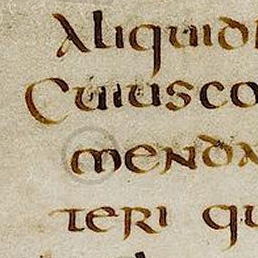 Aliquid
Cuiusco
menda
teri qu